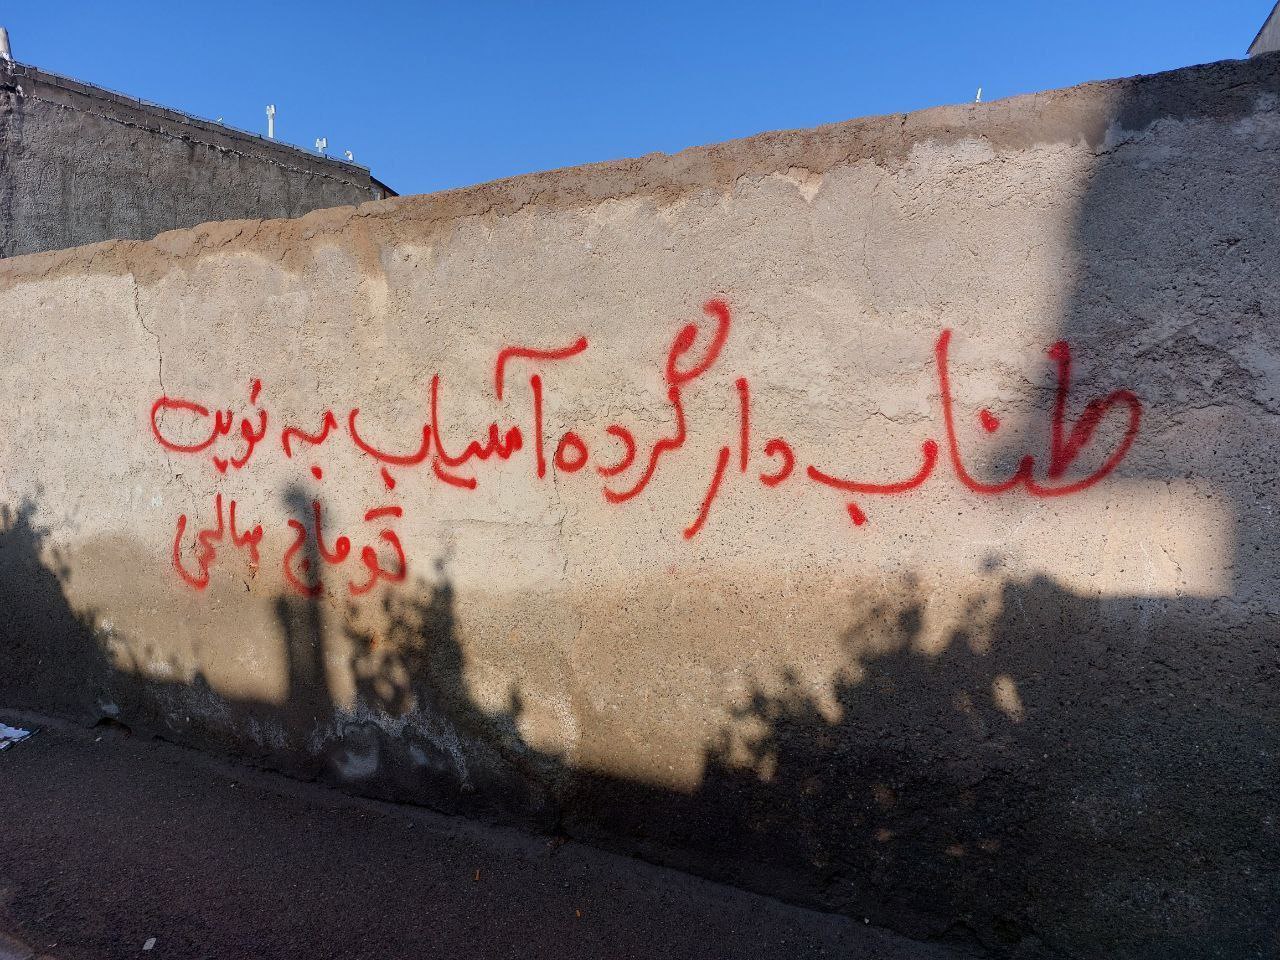 طناب دار گرده آسیاب به نوبت
توماج صالحی